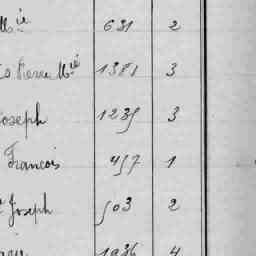 Mie 631 2
Pierre Mie 1381 3
Joseph 1239 3
François 497 1
Joseph 503 2
1986 4